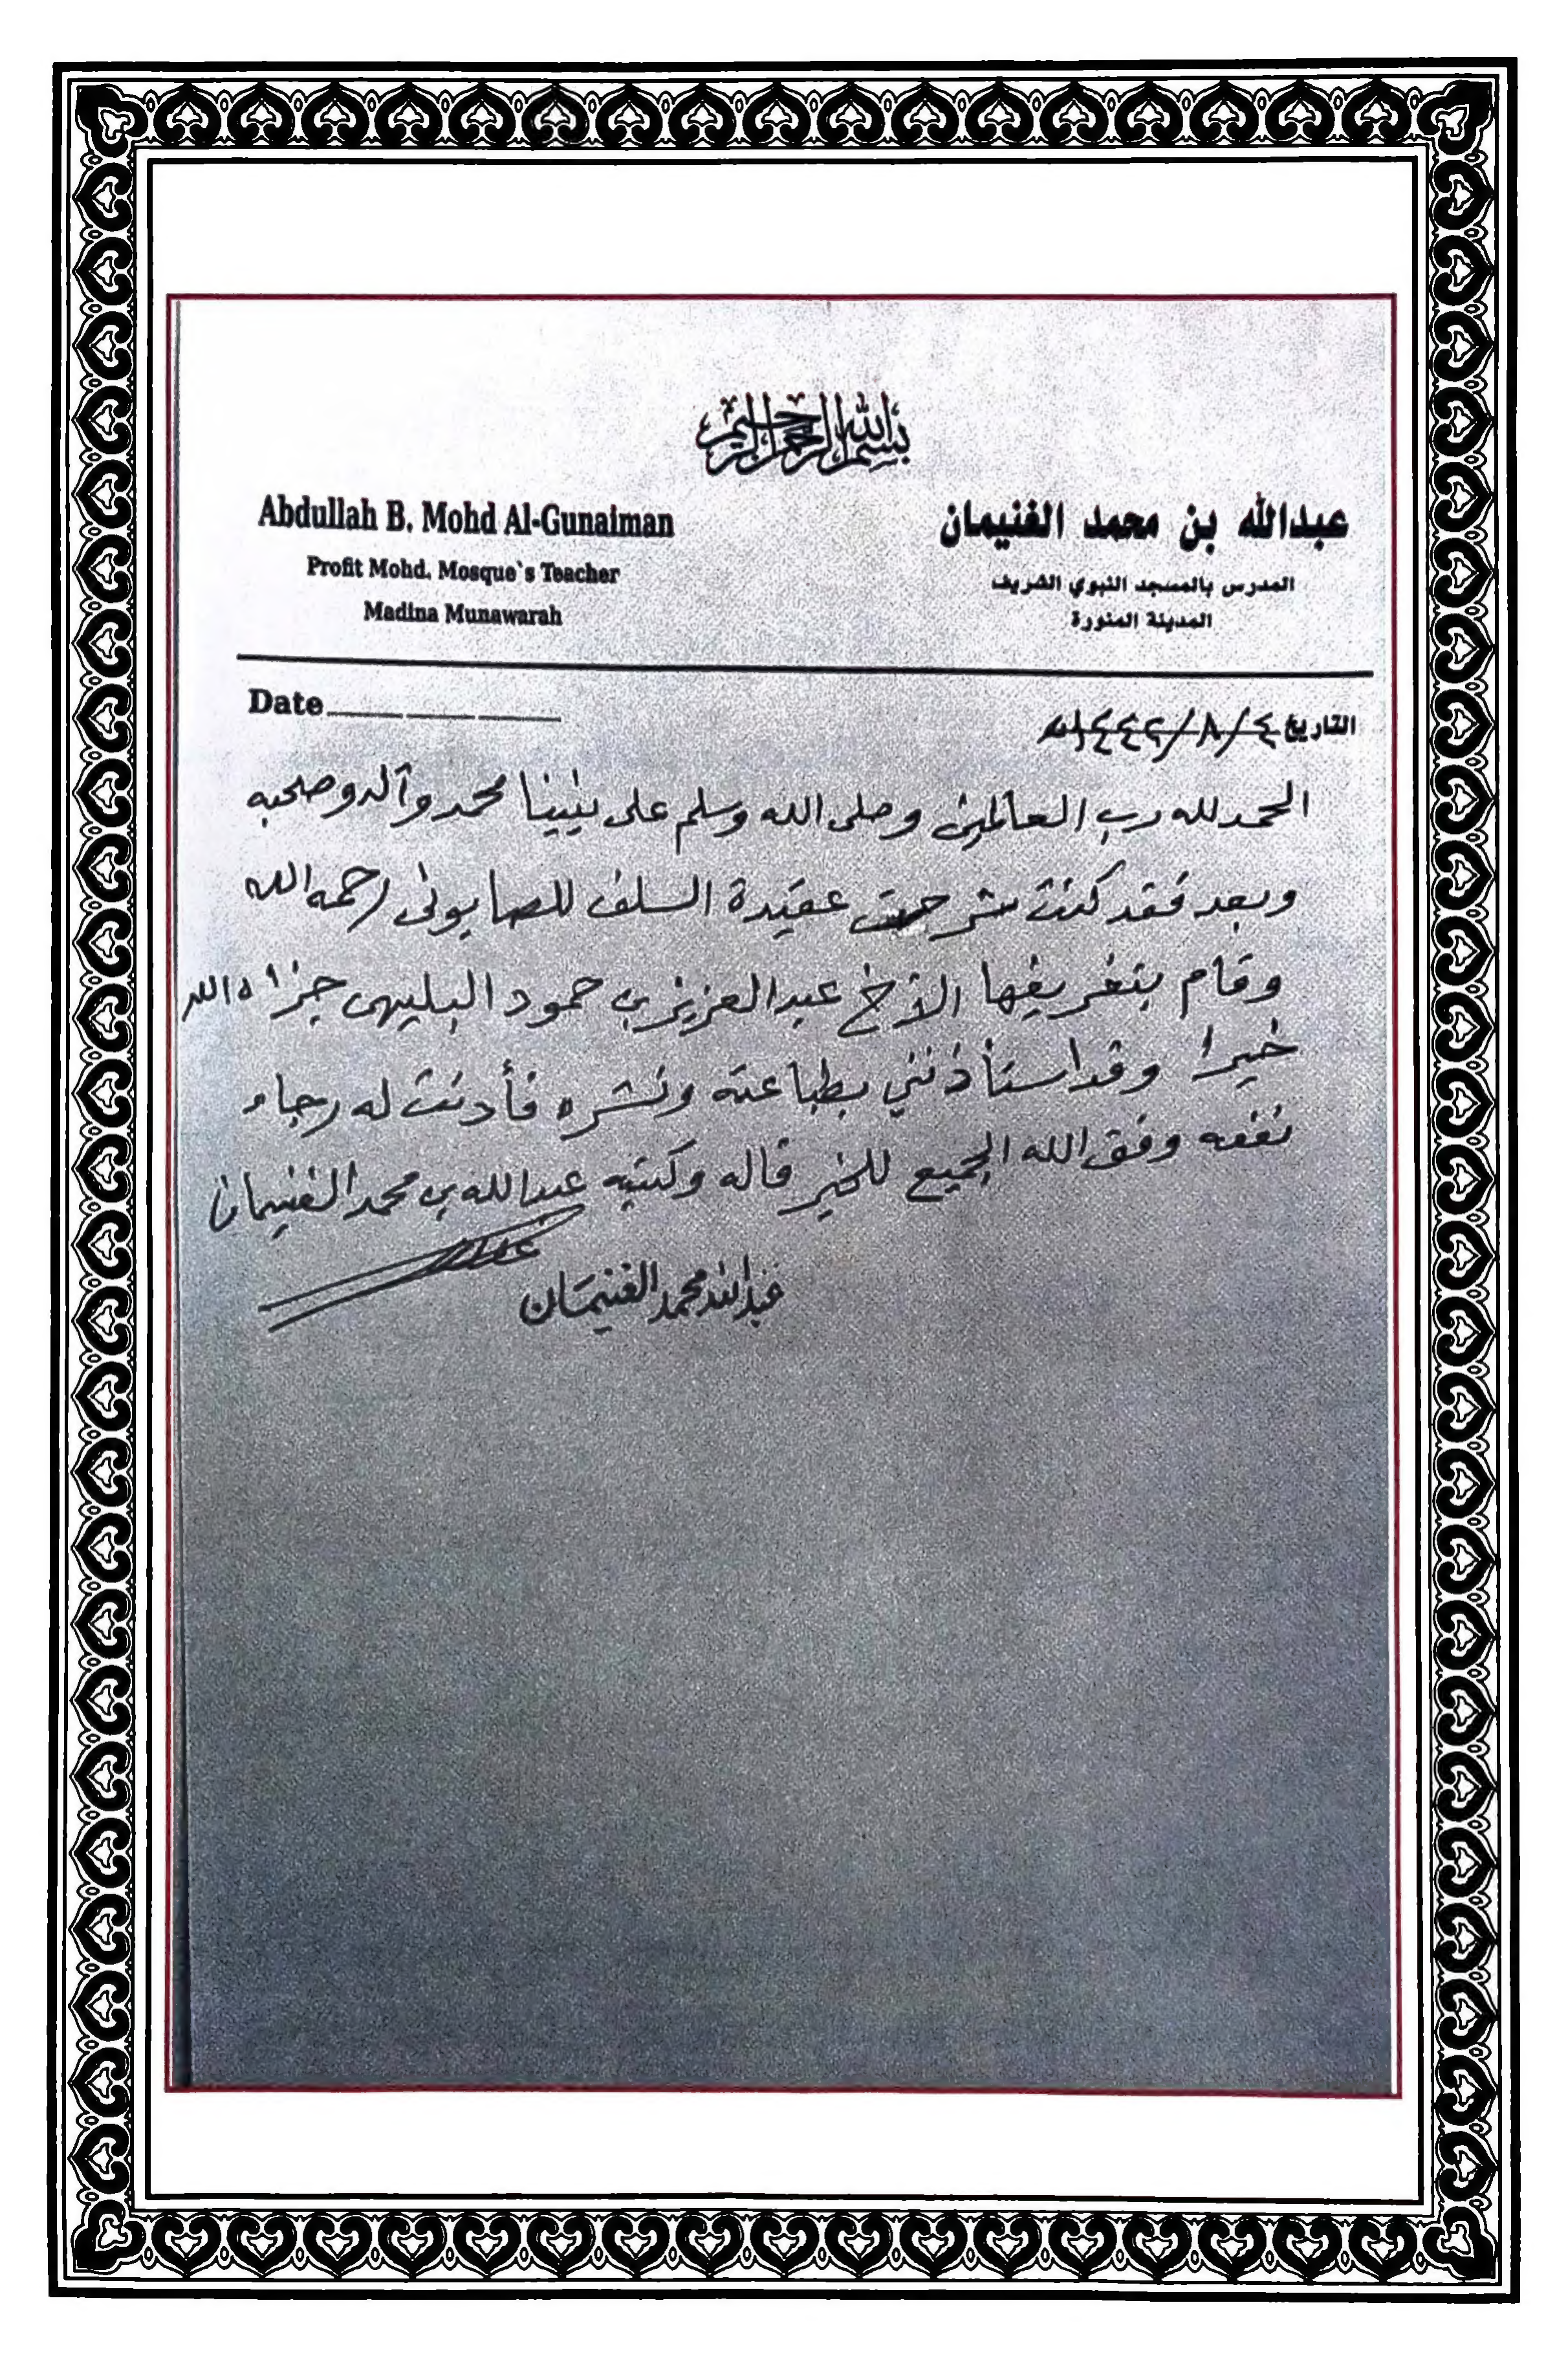 بسم الله الرحمن الرحيم
عبدالله بن محمد الغنيمان
المدرس بالمسجد النبوي الشريف
المدينة المنورة
Abdullah B. Mohd Al-Gunaiman
Profit Mohd. Mosque`s Teacher
Madina Munawarah
التاريخ ٤/٨/١٤٤٢هـ
Date
الحمد لله رب العالمين وصلى الله وسلم على نبينا محمد وآله وصحبه
وبعد فقد كنت شرحت عقيدة السلف للصابونى رحمه الله
وقام بتفريغها الأخ عبدالعزيز بن حمود البليهى جزاه الله
خيرا وقد استأذنني بطباعته ونشره فأذنت له رجاء
نفعه وفق الله الجميع للخير قاله وكتبه عبدالله بن محمد الغنيمان
عبدالله محمد الغنيمان